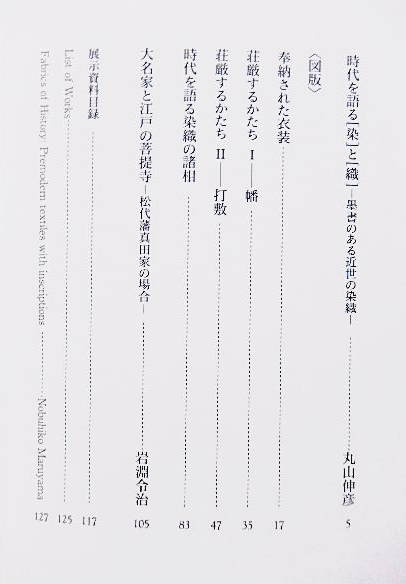 時代を語る[染]と[織]—墨書のある近世の染織— 丸山伸彦 5
〈図版〉
奉納された衣装 17
荘厳するかたち Ⅰ——幡 35
荘厳するかたち Ⅱ——打敷 47
時代を語る染織の諸相 83
大名家と江戸の菩提寺—松代藩真田家の場合— 岩淵令治 105
展示資料目録 117
List of Works 125
Fabrics of History: Premodern textiles with inscriptions Nobuhiko Maruyama 127